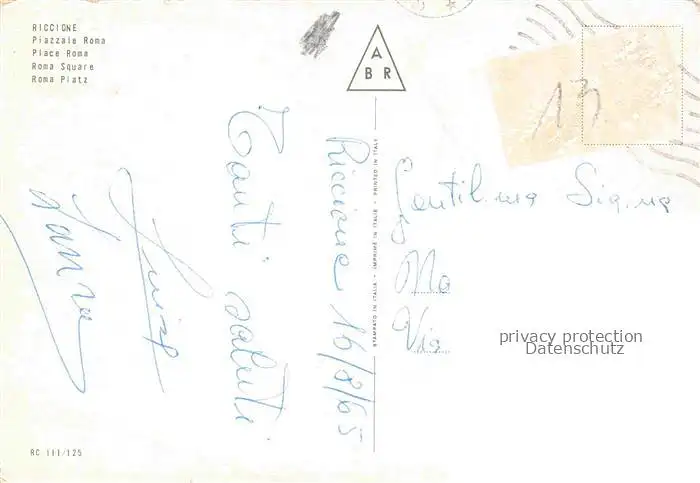 RICCIONE
Piazzale Roma
Place Roma
Roma Square
Roma Platz
A
B R
13
Riccione 16/8/65
Tanti saluti
STAMPATO IN ITALIA - IMPRIMÉ IN ITALIE - PRINTED IN ITALY
Gentil.ma Sig.na
Ma
Via
privacy protection
Datenschutz
RC 111/125